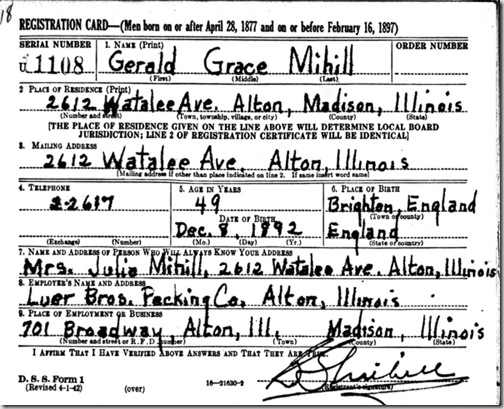 18
REGISTRATION CARD—(Men born on or after April 28, 1877 and on or before February 16, 1897)
SERIAL NUMBER 1. NAME (Print) ORDER NUMBER
U 1108 Gerald Grace Mihill
(First) (Middle) (Last)
2. PLACE OF RESIDENCE (Print)
2612 Watalee Ave. Alton, Madison, Illinois
(Number and street) (Town, township, village, or city) (County) (State)
[THE PLACE OF RESIDENCE GIVEN ON THE LINE ABOVE WILL DETERMINE LOCAL BOARD
JURISDICTION; LINE 2 OF REGISTRATION CERTIFICATE WILL BE IDENTICAL]
3. MAILING ADDRESS
2612 Watalee Ave. Alton, Illinois
[Mailing address if other than place indicated on line 2. If same insert word same]
4. TELEPHONE 5. AGE IN YEARS 6. PLACE OF BIRTH
2-2617 49 Brighton, England
DATE OF BIRTH (Town or county)
Dec. 8, 1892 England
(Exchange) (Number) (Mo.) (Day) (Yr.) (State or country)
7. NAME AND ADDRESS OF PERSON WHO WILL ALWAYS KNOW YOUR ADDRESS
Mrs. Julia Mihill, 2612 Watalee Ave. Alton, Illinois
8. EMPLOYER'S NAME AND ADDRESS
Luer Bros. Packing Co, Alton, Illinois
9. PLACE OF EMPLOYMENT OR BUSINESS
701 Broadway, Alton, Ill. Madison, Illinois
(Number and street or R. F. D. number) (Town) (County) (State)
I AFFIRM THAT I HAVE VERIFIED ABOVE ANSWERS AND THAT THEY ARE TRUE.
D. S. S. Form 1
(Revised 4-1-42) (over) 16—21630-2 (Registrant's signature)